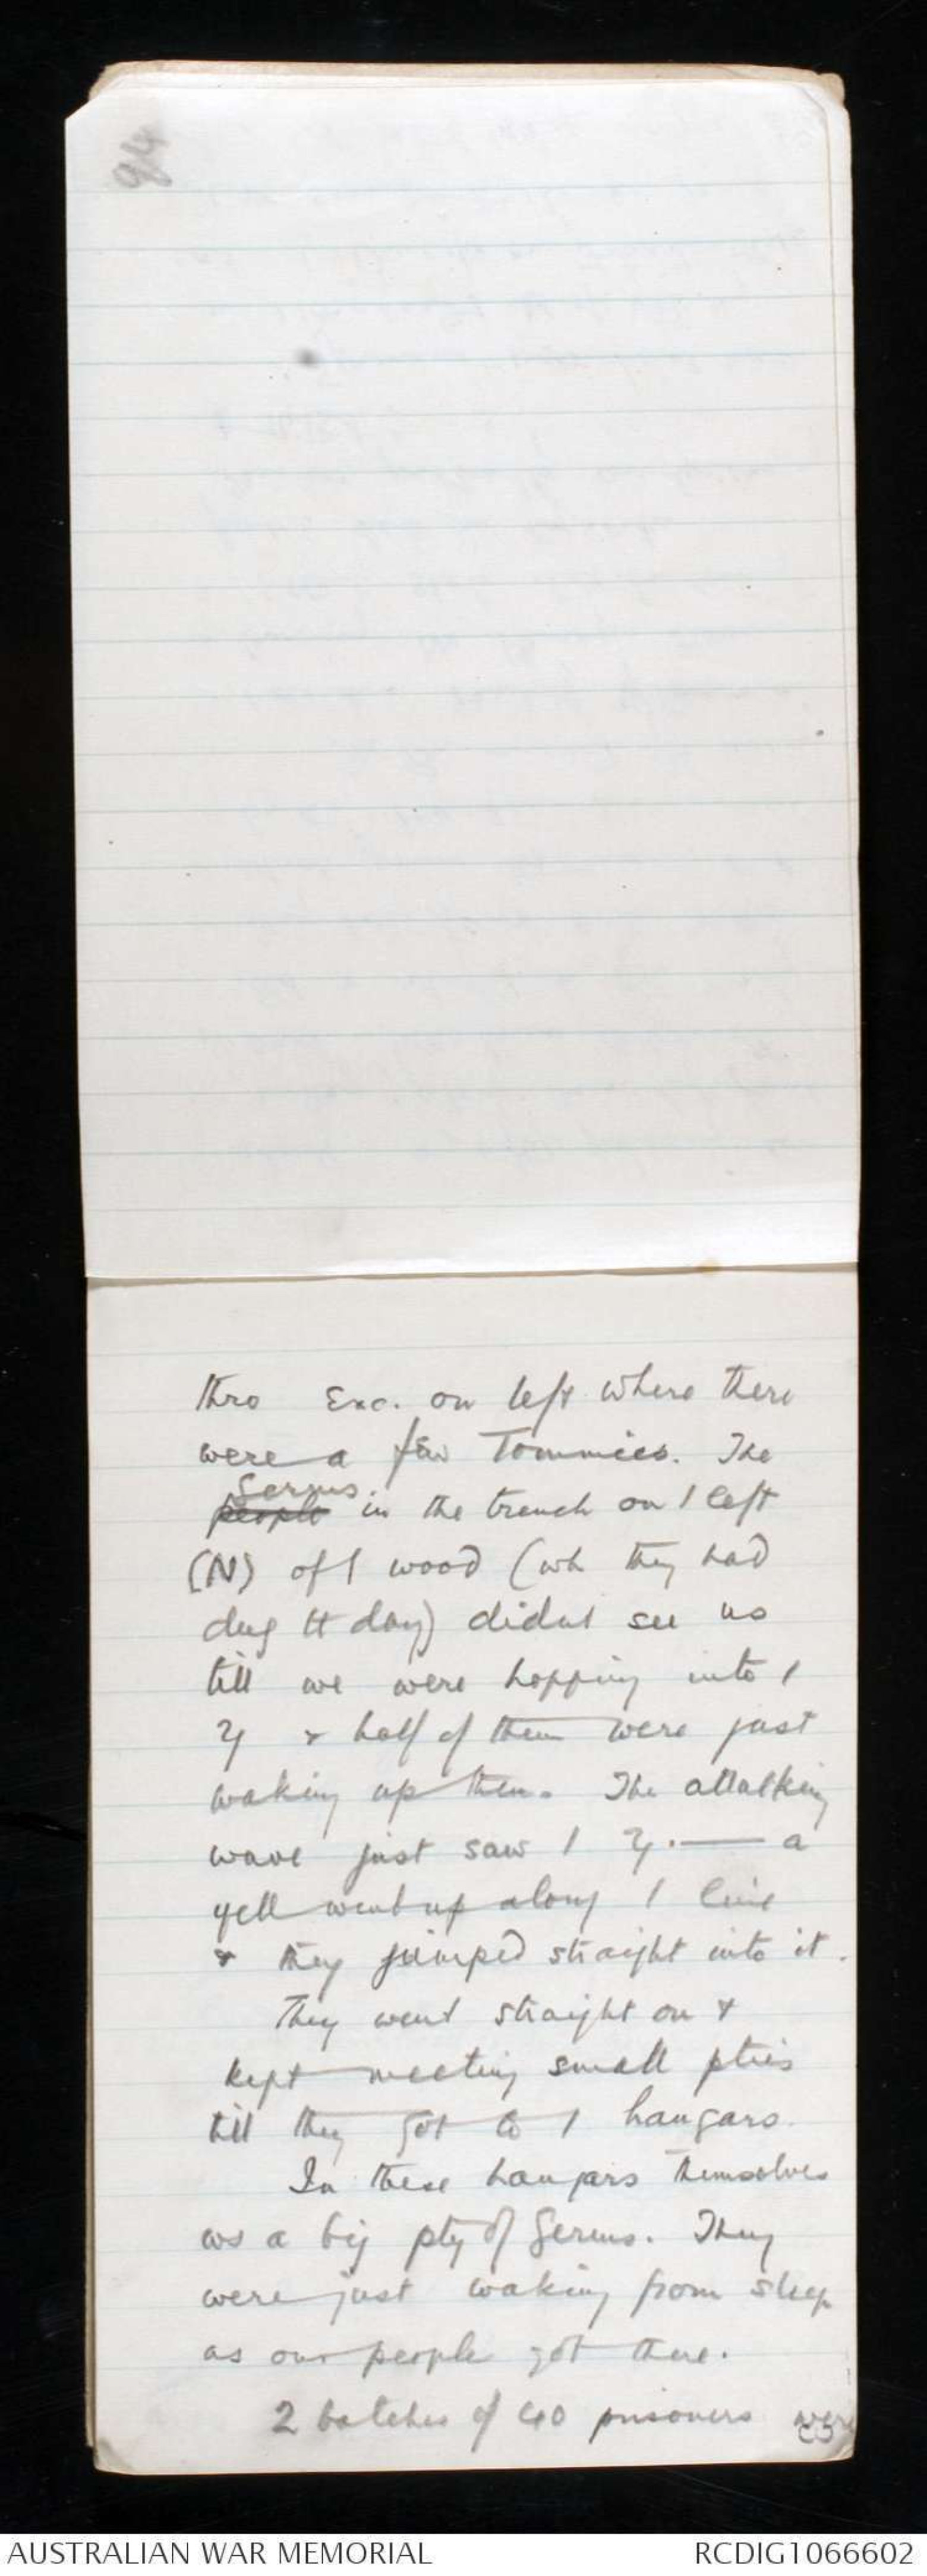 94
thro Exc. on left where there
were a few Tommies. The
Germs.
people in the trench on / left
(N) of / wood (wh they had
dug tt day) didnt see us
till we were hopping into /
& half of them were just
waking up then. The attalking
wave just saw / — a
yell went up along / line
& they jumped straight into it.
They went straight on &
kept meeting small pties
till they got to / hangars.
In these hangars themselves
ws a big pty of Germs. They
were just waking from sleep
as our people got there.
2 batches of 40 prisoners were
AUSTRALIAN WAR MEMORIAL
RCDIG1066602